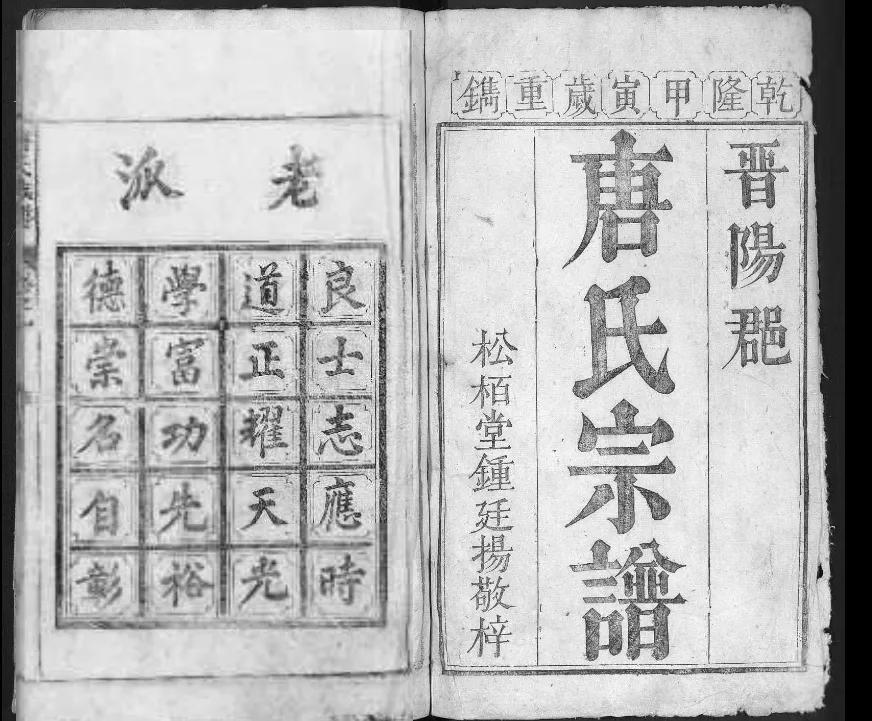 乾隆甲寅歲重鐫
晋陽郡
唐氏宗譜
松栢堂鍾廷揚敬梓
老派
良士志應時
道正耀天光
學富功先裕
德崇名自彰